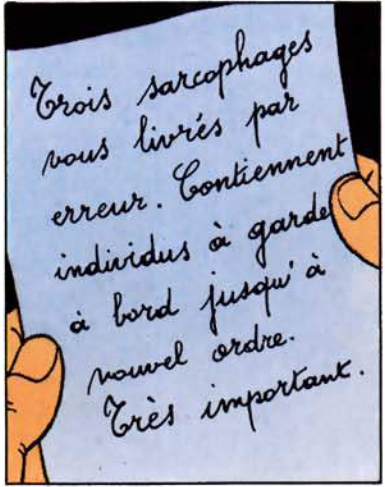 Trois sarcophages
vous livrés par
erreur. Contiennent
individus à garde
à bord jusqu'à
nouvel ordre.
Très important.